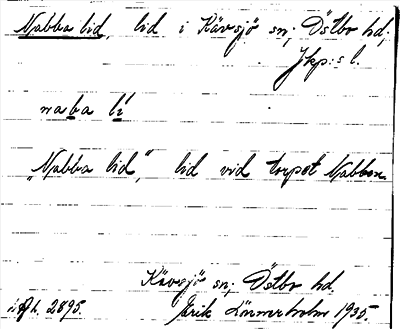 Nabba lid, lid i Kävsjö sn; Östbo hd;
Jkp:s l.
naba li
"Nabba lid", lid vid torpet Nabben
Kävsjö sn; Östbo hd.
2895. Erik Lönnerholm 1935.